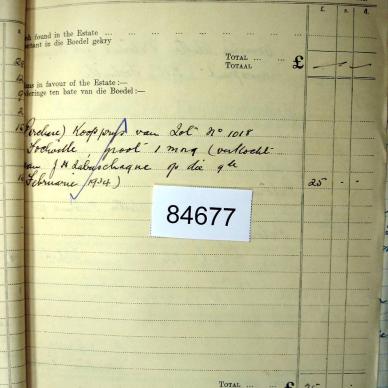 £ s. d.
sh found in the Estate
ntant in die Boedel gekry
TOTAL
TOTAAL £
ms in favour of the Estate:—
deringe ten bate van die Boedel:—
Koopprys van Lot No 1018
groot 1 mrg (verkocht
aan J H Labuschagne op die 9de
Februarie 1934) 25 - -
84677
TOTAL £ 25